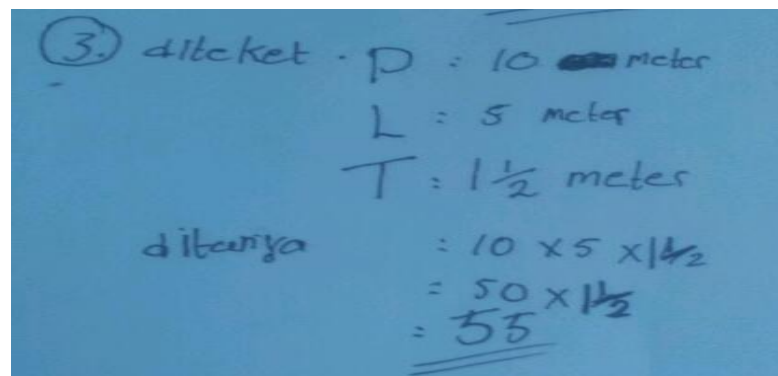 3. diteket . P : 10 meter
L : 5 meter
T : 1 1/2 meter
ditanya : 10 x 5 x 1 1/2
= 50 x 1 1/2
= 55